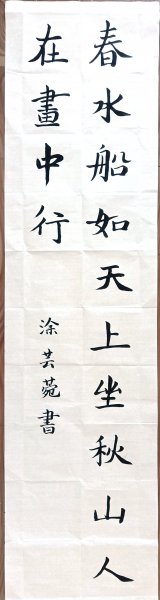 春水船如天上坐秋山人
在畫中行
涂芸菀書